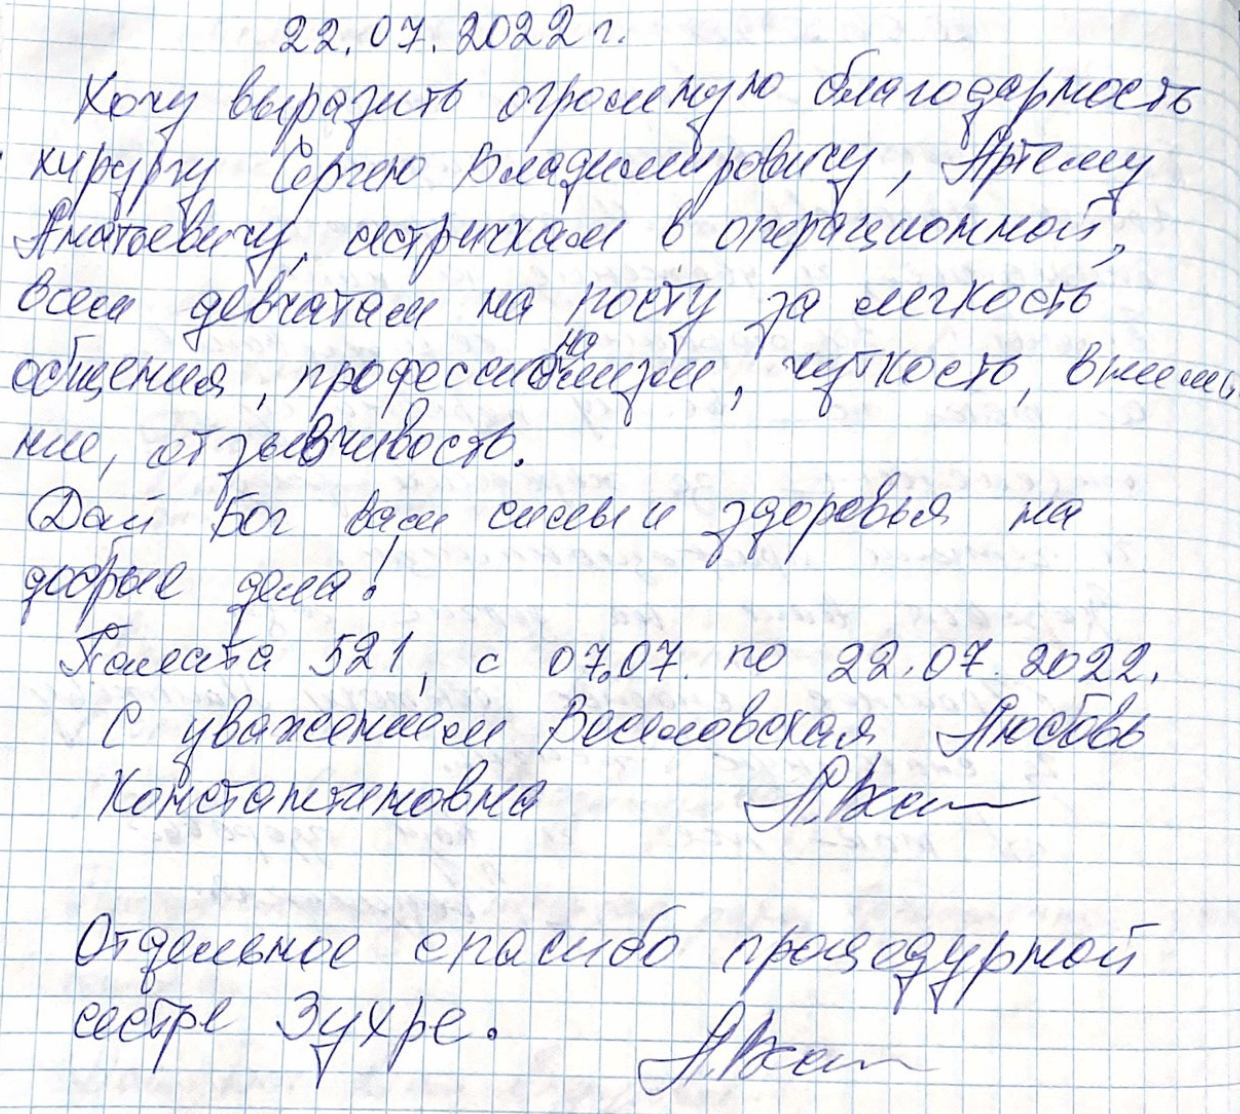 22.07.2022 г.
Хочу выразить огромную благодарность
хирургу Сергею Владимировичу, Артему
Анатоевичу, сестричкам в операционной,
всем девчатам на посту за легкость
общения, профессионализм, чуткость, внима
ние, отзывчивость.
Дай Бог вам силы и здоровья на
добрые дела!
Палата 521, с 07.07. по 22.07.2022.
С уважением Любовь
Константиновна
Отдельное спасибо процедурной
сестре Зухре.